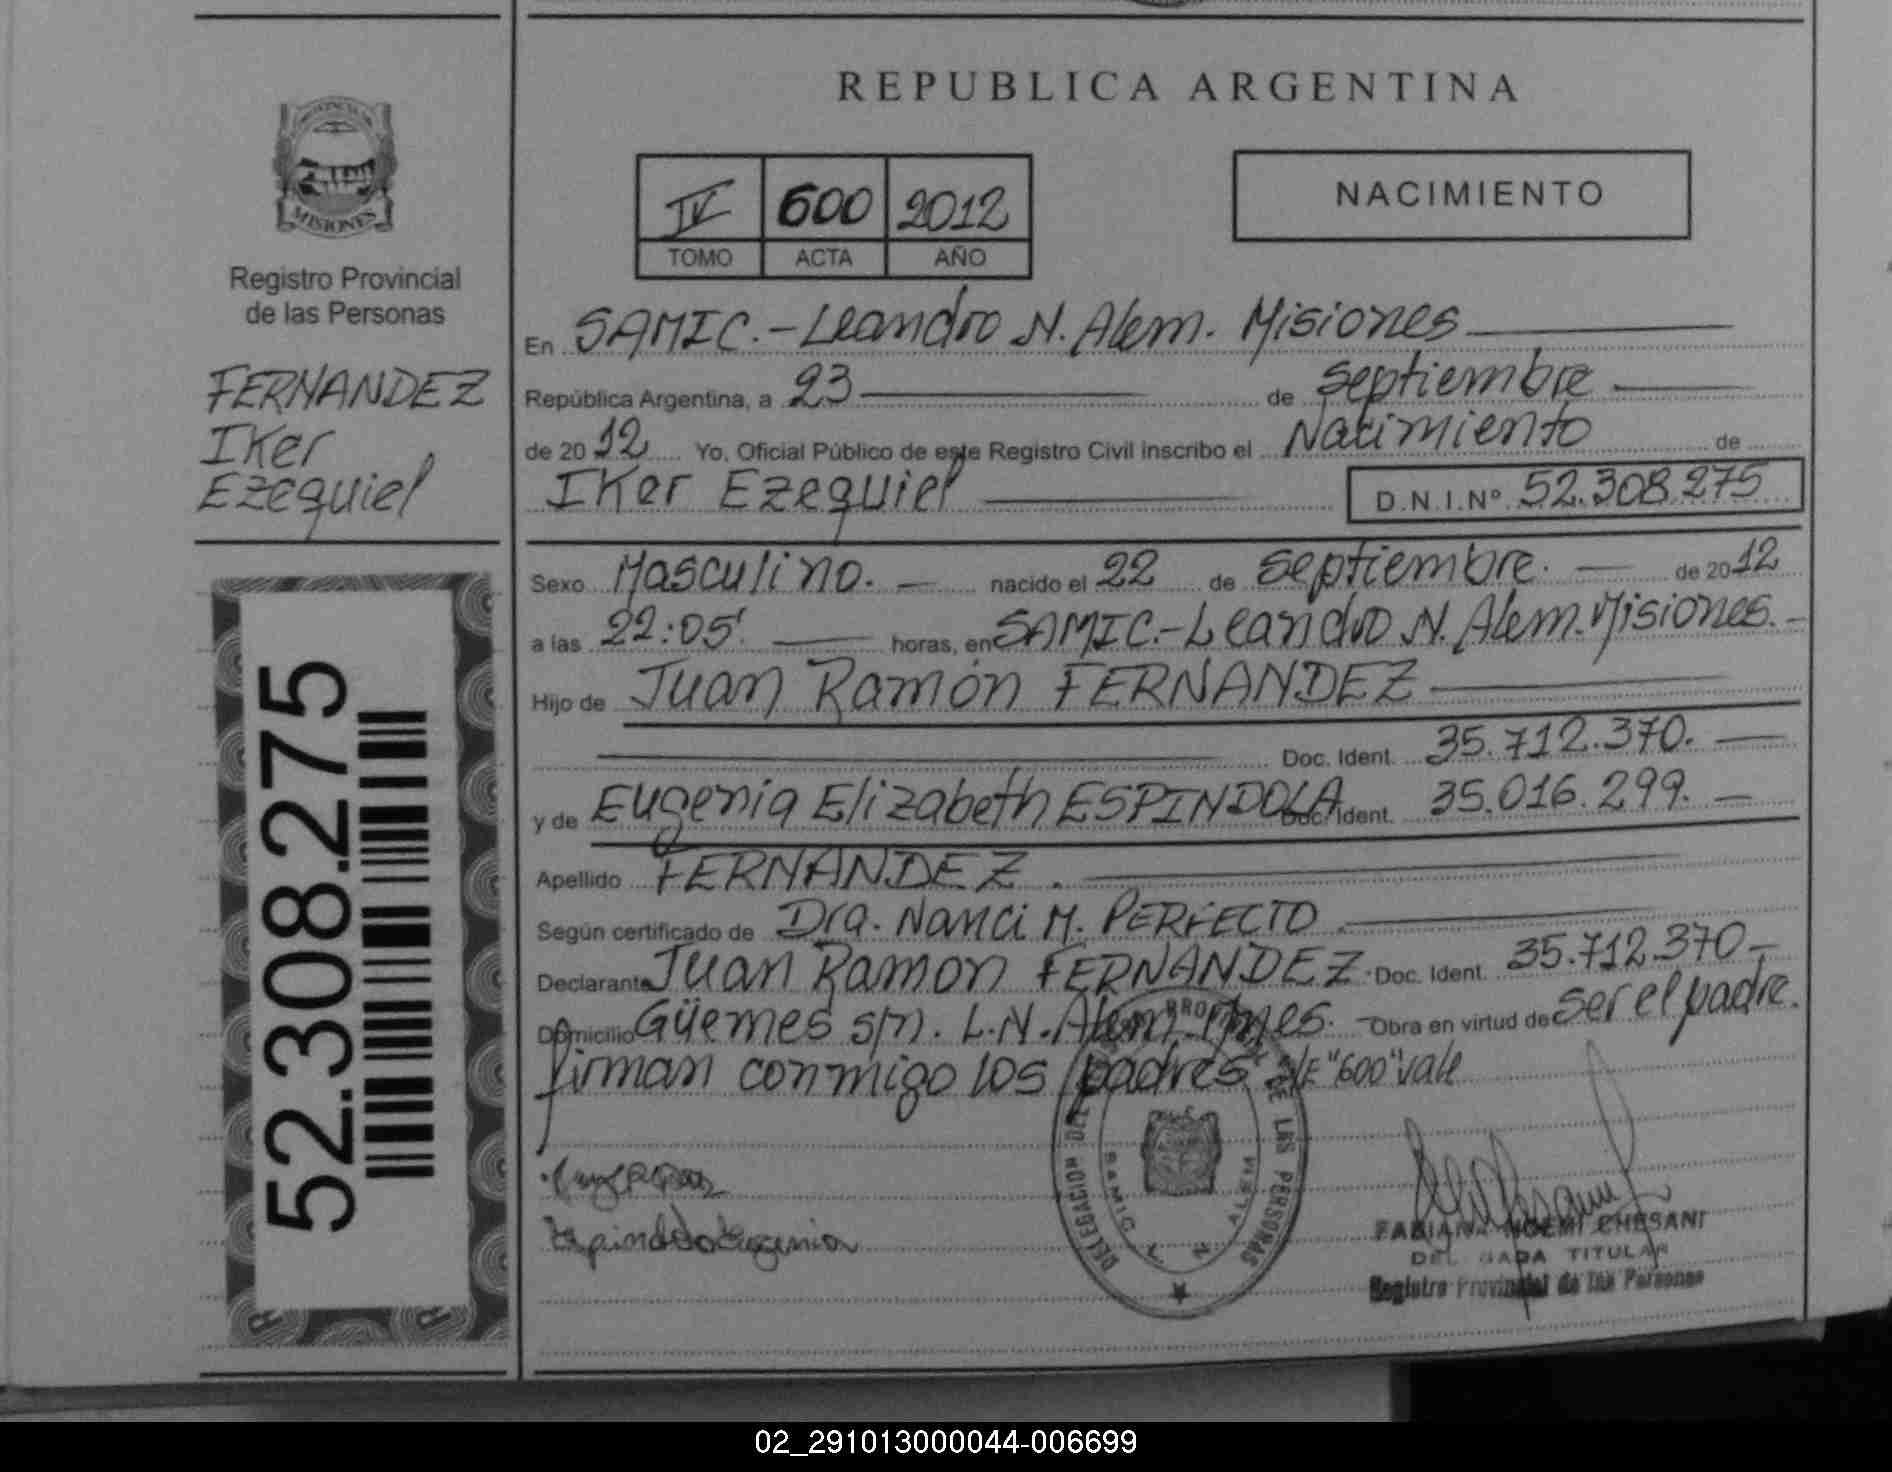 REPUBLICA ARGENTINA
MISIONES
Registro Provincial
de las Personas
FERNANDEZ
Iker
Ezequiel
52.308.275
IV 600 2012
TOMO ACTA AÑO
NACIMIENTO
En SAMIC.-Leandro N. Alem. Misiones
República Argentina, a 23 de septiembre
de 2012 Yo, Oficial Público de este Registro Civil inscribo el Nacimiento de
Iker Ezequiel D.N.I.Nº 52.308.275
Sexo Masculino. nacido el 22 de septiembre. de 2012
a las 22:05' horas, en SAMIC.-Leandro N. Alem. Misiones.-
Hijo de Juan Ramón FERNANDEZ
Doc. Ident. 35.712.370.
y de Eugenia Elizabeth ESPINDOLA Doc. Ident. 35.016.299.
Apellido FERNANDEZ.
Según certificado de Dra. Nanci M. PERFECTO.
Declarante Juan Ramon FERNANDEZ. Doc. Ident. 35.712.370.-
Domicilio Güemes s/n. L.N. Alem. Mnes. Obra en virtud de ser el padre.
firman conmigo los padres s/E "600" vale
DELEGACION DEL DE LAS PERSONAS
SAMIC L. N. ALEM
Espindola Eugenia
FABIANA NOEMI CHESANI
DELEGADA TITULAR
Registro Provincial de las Personas
02_291013000044-006699